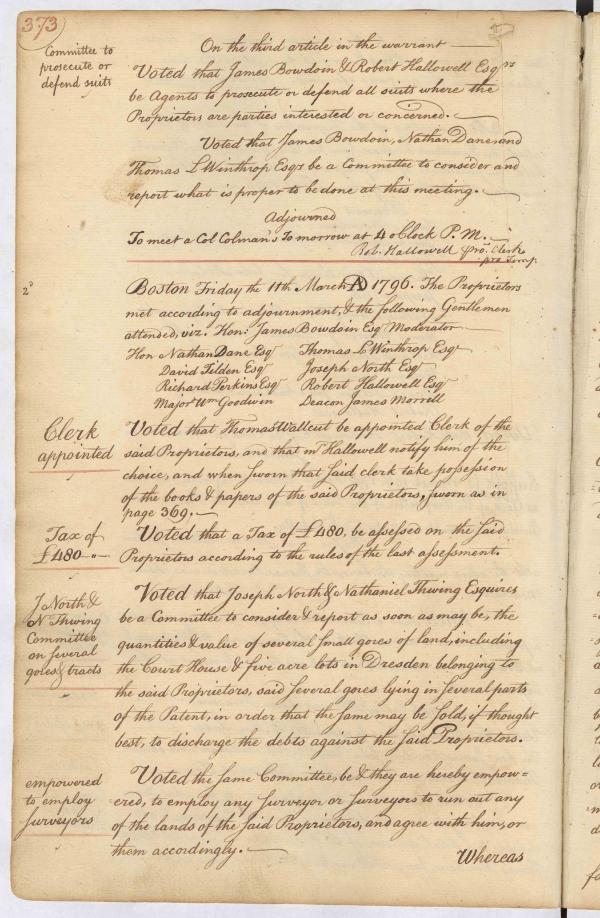 373
Committee to
prosecute or
defend suits
On the third article in the warrant
Voted that James Bowdoin & Robert Hallowell Esqrs
be Agents to prosecute or defend all suits where the
Proprietors are parties interested or concerned.
Voted that James Bowdoin, Nathan Dane, and
Thomas L Winthrop Esqr be a Committee to consider and
report what is proper to be done at this meeting.
Adjourned
To meet a Col Colman's To morrow at 4 o Clock P. M.
Rob. Hallowell pro. Clerk
pro Temp.
2d
Boston Friday the 11th March AD 1796. The Proprietors
met according to adjournment, & the following Gentlemen
attended, viz. Hon: James Bowdoin Esq Moderator
Hon Nathan Dane Esqr Thomas L Winthrop Esqr
David Tilden Esqr Joseph North Esqr
Richard Perkins Esqr Robert Hallowell Esqr
Major Wm Goodwin Deacon James Morrill
Clerk
appointed
Voted that Thomas Wallcut be appointed Clerk of the
said Proprietors, and that mr Hallowell notify him of the
choice, and when sworn that said clerk take possession
of the books & papers of the said Proprietors, sworn as in
page 369.
Tax of
£480 "
Voted that a Tax of £480, be assessed on the said
Proprietors according to the rules of the last assessment.
J North &
N Thwing
Committee
on several
gores & tracts
Voted that Joseph North & Nathaniel Thwing Esquires
be a Committee to consider & report as soon as may be, the
quantities & value of several small gores of land, including
the Court House & five acre lots in Dresden belonging to
the said Proprietors, said several gores lying in several parts
of the Patent, in order that the same may be sold, if thought
best, to discharge the debts against the said Proprietors.
empowered
to employ
surveyors
Voted the same Committee, be & they are hereby empow=
ered, to employ any surveyor or surveyors to run out any
of the lands of the said Proprietors, and agree with him, or
them accordingly.
Whereas